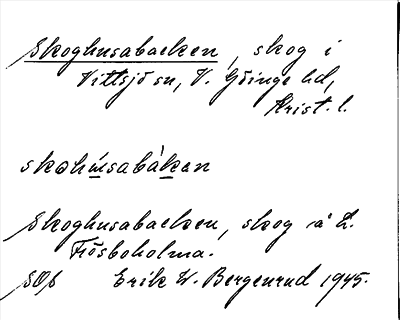 Skoghusabacken, skog i
Vittsjö sn, V. Göinge hd,
Krist. l.
skǝhu̲̇sabàk̲ǝn
Skoghusabacken, skog å L.
Frösboholma.
SOS Erik W. Bergenrud 1945.